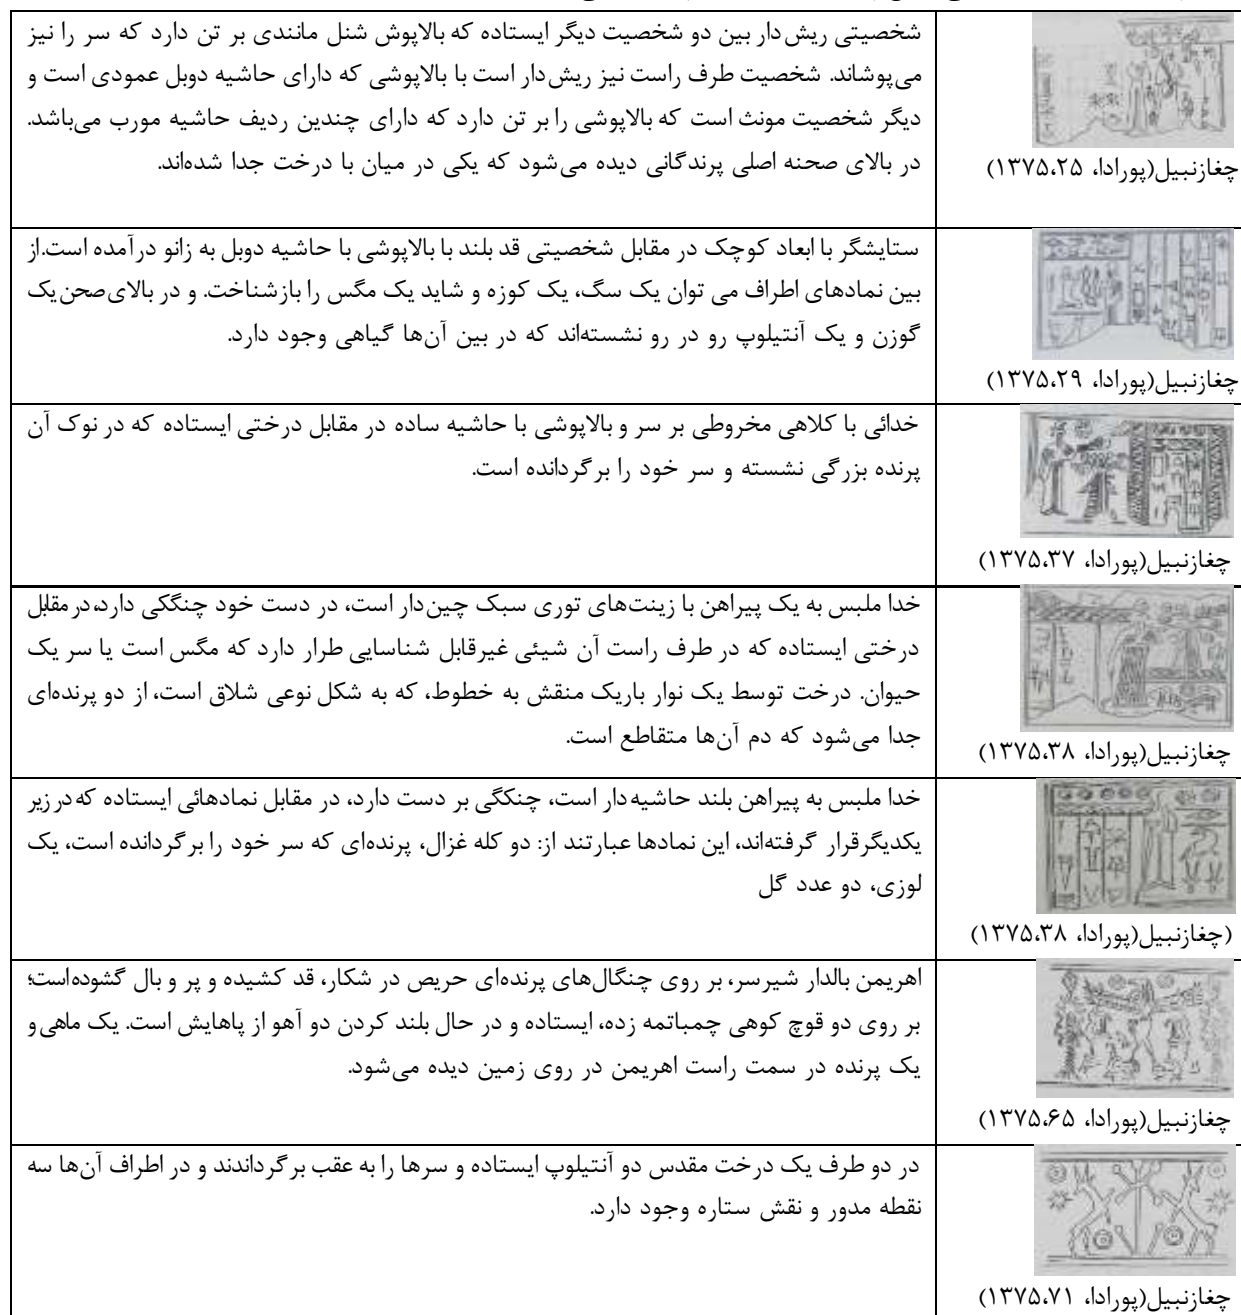 شخصیتی ریش‌دار بین دو شخصیت دیگر ایستاده که بالاپوش شنل مانندی بر تن دارد که سر را نیز
می‌پوشاند. شخصیت طرف راست نیز ریش‌دار است با بالاپوشی که دارای حاشیه دوبل عمودی است و
دیگر شخصیت مونث است که بالاپوشی را بر تن دارد که دارای چندین ردیف حاشیه مورب می‌باشد.
در بالای صحنه اصلی پرندگانی دیده می‌شود که یکی در میان با درخت جدا شده‌اند.
چغازنبیل(پورادا، ۱۳۷۵،۲۵)
ستایشگر با ابعاد کوچک در مقابل شخصیتی قد بلند با بالاپوشی با حاشیه دوبل به زانو درآمده است.از
بین نمادهای اطراف می توان یک سگ، یک کوزه و شاید یک مگس را بازشناخت. و در بالای صحن یک
گوزن و یک آنتیلوپ رو در رو نشسته‌اند که در بین آن‌ها گیاهی وجود دارد.
چغازنبیل(پورادا، ۱۳۷۵،۲۹)
خدائی با کلاهی مخروطی بر سر و بالاپوشی با حاشیه ساده در مقابل درختی ایستاده که در نوک آن
پرنده بزرگی نشسته و سر خود را برگردانده است.
چغازنبیل(پورادا، ۱۳۷۵،۳۷)
خدا ملبس به یک پیراهن با زینت‌های توری سبک چین‌دار است، در دست خود چنگکی دارد، در مقابل
درختی ایستاده که در طرف راست آن شیئی غیرقابل شناسایی طرار دارد که مگس است یا سر یک
حیوان. درخت توسط یک نوار باریک منقش به خطوط، که به شکل نوعی شلاق است، از دو پرنده‌ای
جدا می‌شود که دم آن‌ها متقاطع است.
چغازنبیل(پورادا، ۱۳۷۵،۳۸)
خدا ملبس به پیراهن بلند حاشیه‌دار است، چنگگی بر دست دارد، در مقابل نمادهائی ایستاده که در زیر
یکدیگر قرار گرفته‌اند، این نمادها عبارتند از: دو کله غزال، پرنده‌ای که سر خود را برگردانده است، یک
لوزی، دو عدد گل
(چغازنبیل(پورادا، ۱۳۷۵،۳۸)
اهریمن بالدار شیرسر، بر روی چنگال‌های پرنده‌ای حریص در شکار، قد کشیده و پر و بال گشوده‌است؛
بر روی دو قوچ کوهی چمباتمه زده، ایستاده و در حال بلند کردن دو آهو از پاهایش است. یک ماهی و
یک پرنده در سمت راست اهریمن در روی زمین دیده می‌شود.
چغازنبیل(پورادا، ۱۳۷۵،۶۵)
در دو طرف یک درخت مقدس دو آنتیلوپ ایستاده و سرها را به عقب برگرداندند و در اطراف آن‌ها سه
نقطه مدور و نقش ستاره وجود دارد.
چغازنبیل(پورادا، ۱۳۷۵،۷۱)